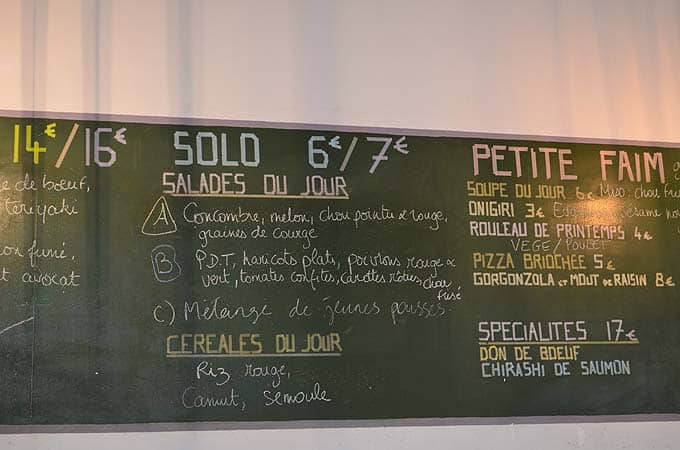 14€/16€
e de bœuf,
teriyaki
fumé,
t avocat
SOLO 6€/7€
SALADES DU JOUR
A Concombre, melon, chou pointu & rouge,
graines de courge
B P.D.T, haricots plats, poivrons rouge &
vert, tomates confites, carottes rôties, chou
frisé
C) Mélange de jeunes pousses.
CEREALES DU JOUR
Riz rouge,
Camut, semoule
PETITE FAIM
SOUPE DU JOUR 6€ Miso: chou
ONIGIRI 3€ sésame
ROULEAU DE PRINTEMPS 4€
VEGE/POULET
PIZZA BRIOCHEE 5€
GORGONZOLA ET MOUT DE RAISIN 8€
SPECIALITES 17€
DON DE BOEUF
CHIRASHI DE SAUMON